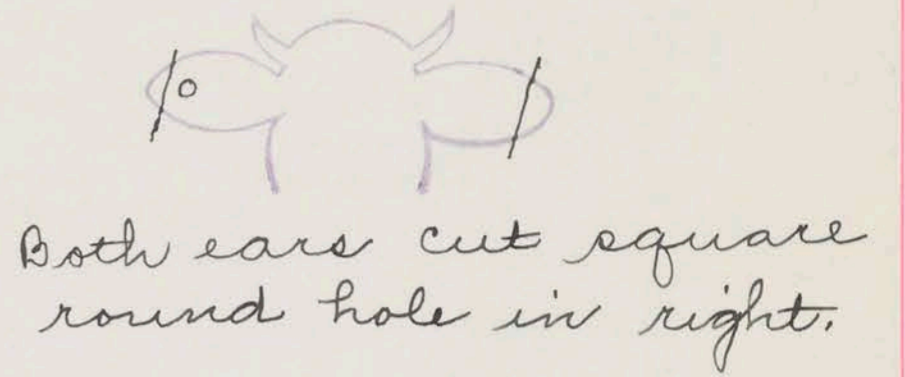 Both ears cut square
round hole in right.